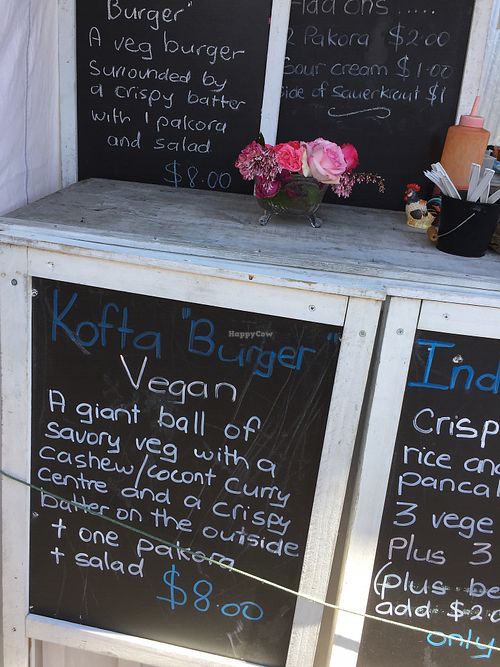 Burger"
A veg burger
Surrounded by
a crispy batter
with 1 pakora
and salad
$8.00
Add ons.....
2 Pakora $2.00
Sour cream $1.00
side of Sauerkraut $1
HappyCow
Kofta "Burger"
Vegan
A giant ball of
savory veg with a
cashew/cocont curry
centre and a crispy
batter on the outside
+ one pakora
+ salad
$8.00
Crisp
rice an
panca
3 vege
Plus 3
(plus be
add $2.
only